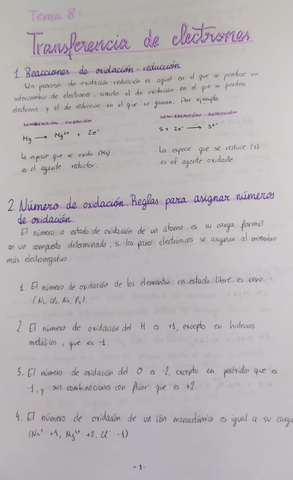 Tema 8
Transferencia de electrones.
1. Reacciones de oxidación-reducción
Un proceso de oxidación-reducción es aquel en el que se produce un
intercambio de electrones, siendo el de oxidación en el que se pierden
electrones y el de reducción en el que se ganan. Por ejemplo
SEMIREACCIÓN OXIDACIÓN SEMIREACCIÓN REDUCCIÓN
Mg → Mg²⁺ + 2e⁻ S + 2e⁻ → S²⁻
La especie que se oxida (Mg) La especie que se reduce (S)
es el agente reductor. es el agente oxidante
2. Número de oxidación. Reglas para asignar números
de oxidación.
El número o estado de oxidación de un átomo, es su carga formal
en un compuesto determinado, si los pares electrónicos se asignan al miembro
más electronegativo
1. El número de oxidación de los elementos en estado libre es cero
2. El número de oxidación del H es +1, excepto en hidruros
metálicos, que es -1.
3. El número de oxidación del O es -2, excepto en peróxido que es
-1, y sus combinaciones con flúor que es +2.
4. El número de oxidación de un ión monoatómico es igual a su carga
(Na⁺ +1, Mg²⁺ +2, Cl⁻ -1)
-1-